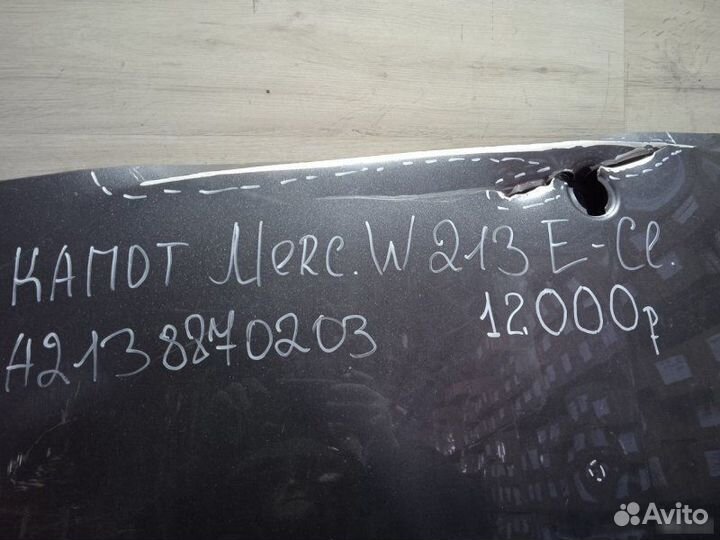 КАПОТ Merc. W213 E-Cl.
A2138870203
12000р
Avito